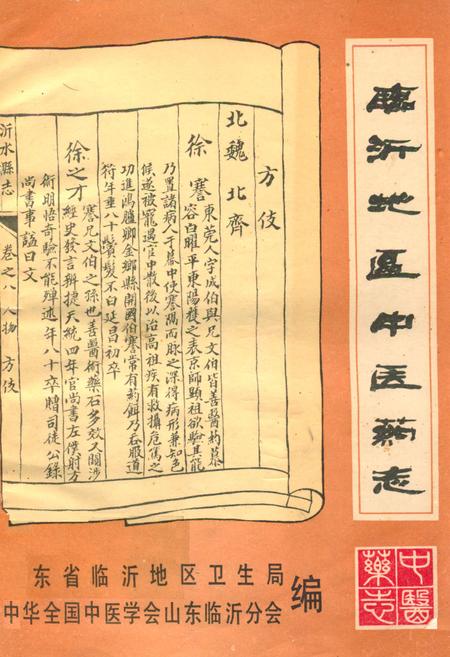 臨沂地區中医葯志
中醫
藥志
方伎
北魏 北齊
徐謇 東莞人字成伯與兄文伯皆善醫葯慕
容白曜平東陽獲之表京師顯祖欲驗其能
乃置諸病人于幕中使謇隔而脉之深得病形兼知色
候遂被寵遇官中散後以治高祖疾有救攝危篤之
功進鴻臚卿金鄉縣開國伯謇常有葯餌乃吞服道
符年垂八十鬚鬢不白延昌初卒
徐之才 謇兄文伯之孫也善醫術藥石多效又闚涉
經史發言辯捷天統四年官尚書左僕射方
術明悟奇驗不能殫述年八十卒贈司徒公錄
尚書事諡曰文
沂水縣志 卷之八 人物 方伎
东省临沂地区卫生局
中华全国中医学会山东临沂分会
编